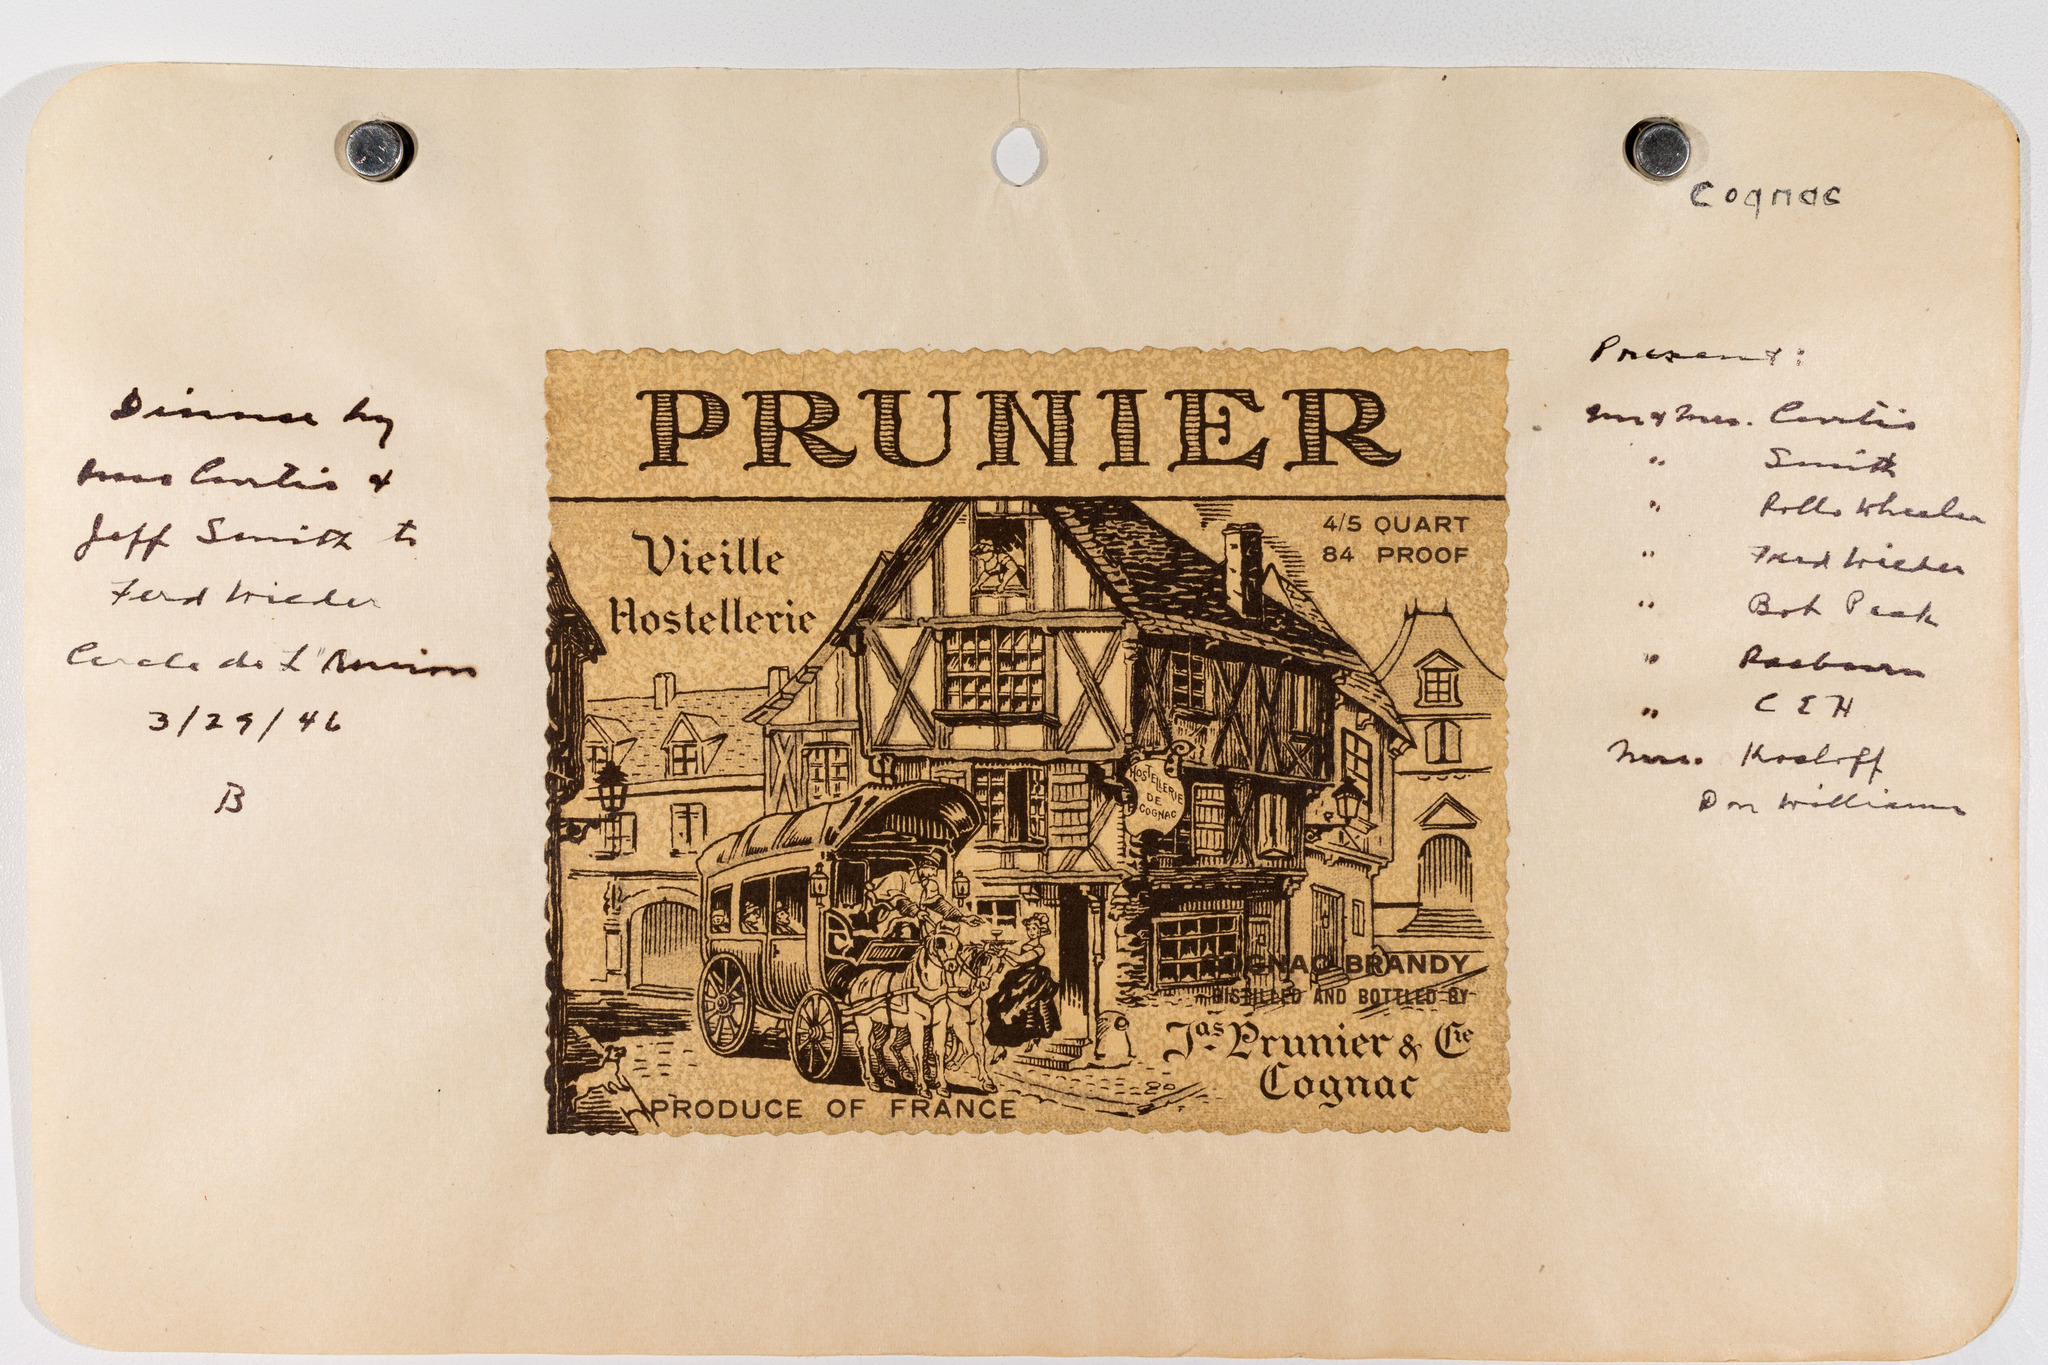 Cognac
Dinner by
Curtis &
Jeff Smith to
Ferd Wieder
Cercle de L'Union
3/29/46
B
PRUNIER
Vieille
Hostellerie
4/5 QUART
84 PROOF
HOSTELLERIE
DE
COGNAC
COGNAC BRANDY
DISTILLED AND BOTTLED BY
Jas Prunier & Cie
Cognac
PRODUCE OF FRANCE
Present:
Mr & Mrs. Curtis
" Smith
" Rollo Wheeler
" Ferd Wieder
" Bob Peck
"
" C E H
Mrs. Kosloff
Don Williams